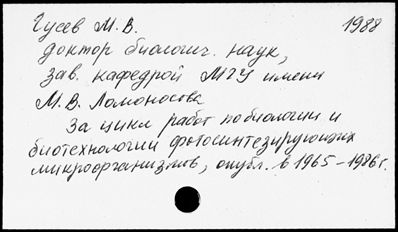 Гусев М. В. 1988
доктор биологич. наук,
зав. кафедрой МГУ имени
М. В. Ломоносова
За цикл работ по биологии и
биотехнологии фотосинтезирующих
микроорганизмов, опубл. в 1965–1986 г.